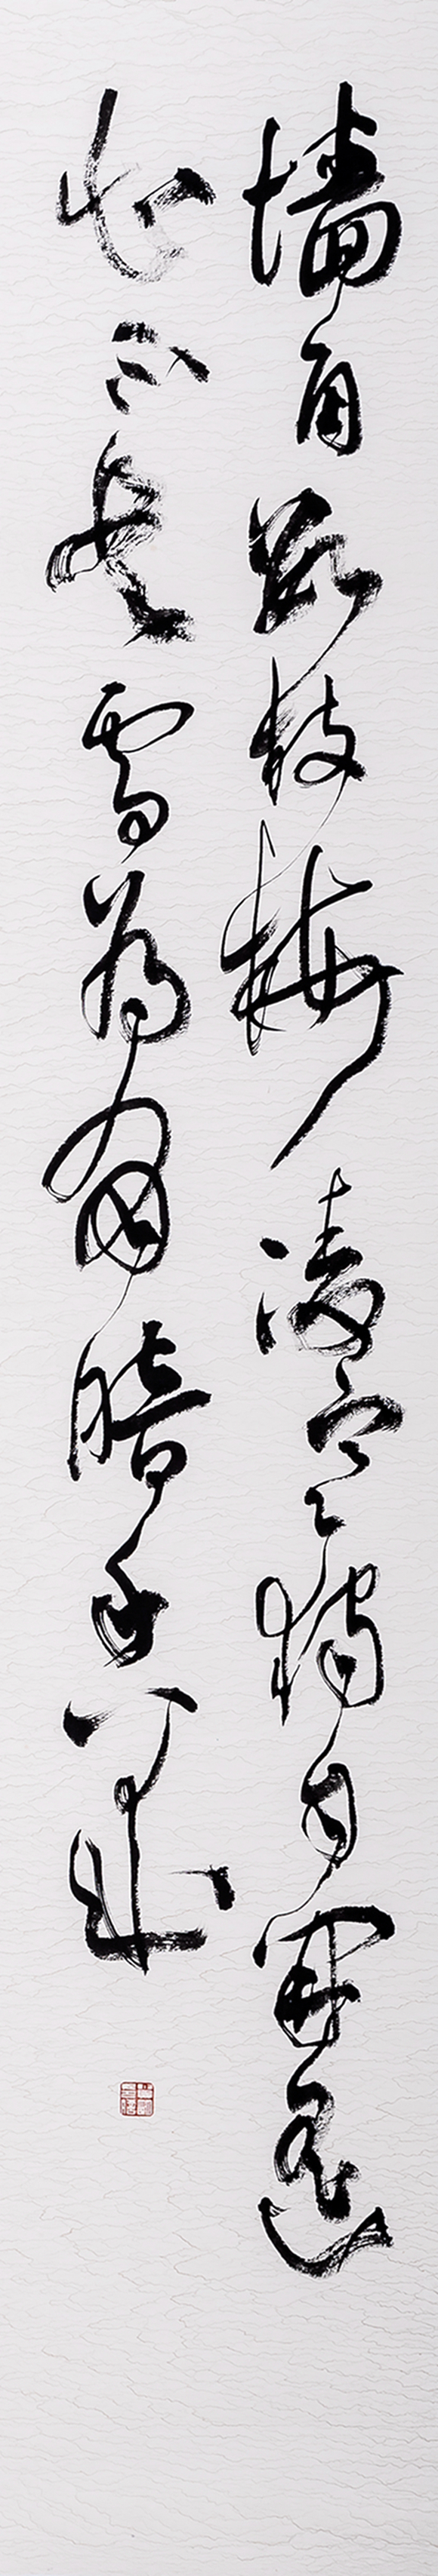 墙角数枝梅凌寒独自开遥
知不是雪为有暗香来